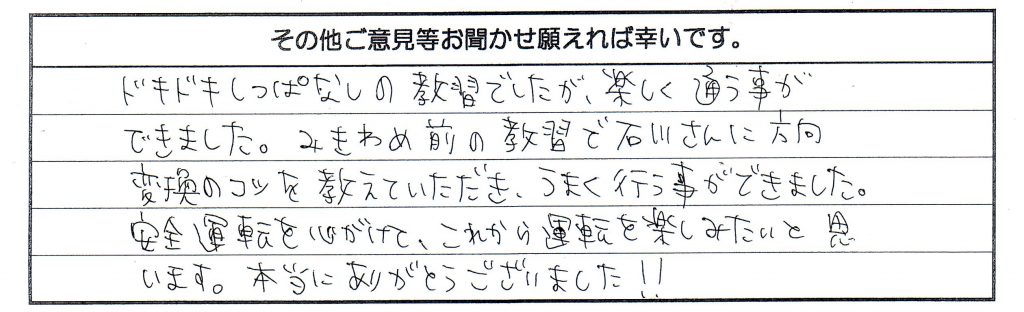 その他ご意見等お聞かせ願えれば幸いです。
ドキドキしっぱなしの教習でしたが、楽しく通う事が
できました。みきわめ前の教習で石川さんに方向
変換のコツを教えていただき、うまく行う事ができました。
安全運転を心がけて、これから運転を楽しみたいと思
います。本当にありがとうございました!!